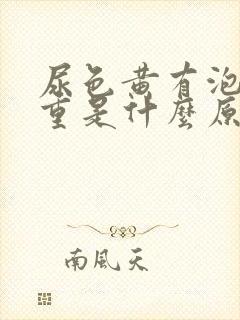 尿色黄有泡
重是什麼原
南風天